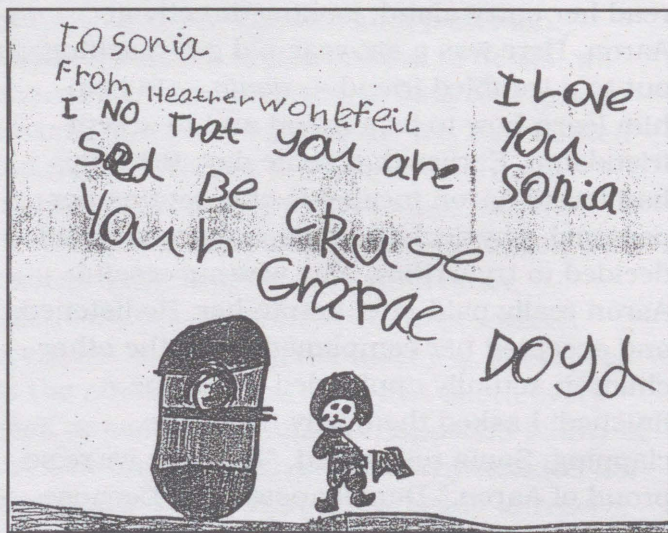 TO sonia
From Heather wonkfeil
I NO That you are
Sed Be
Your CRuse
Grapae
DOyd
I Love
You
Sonia